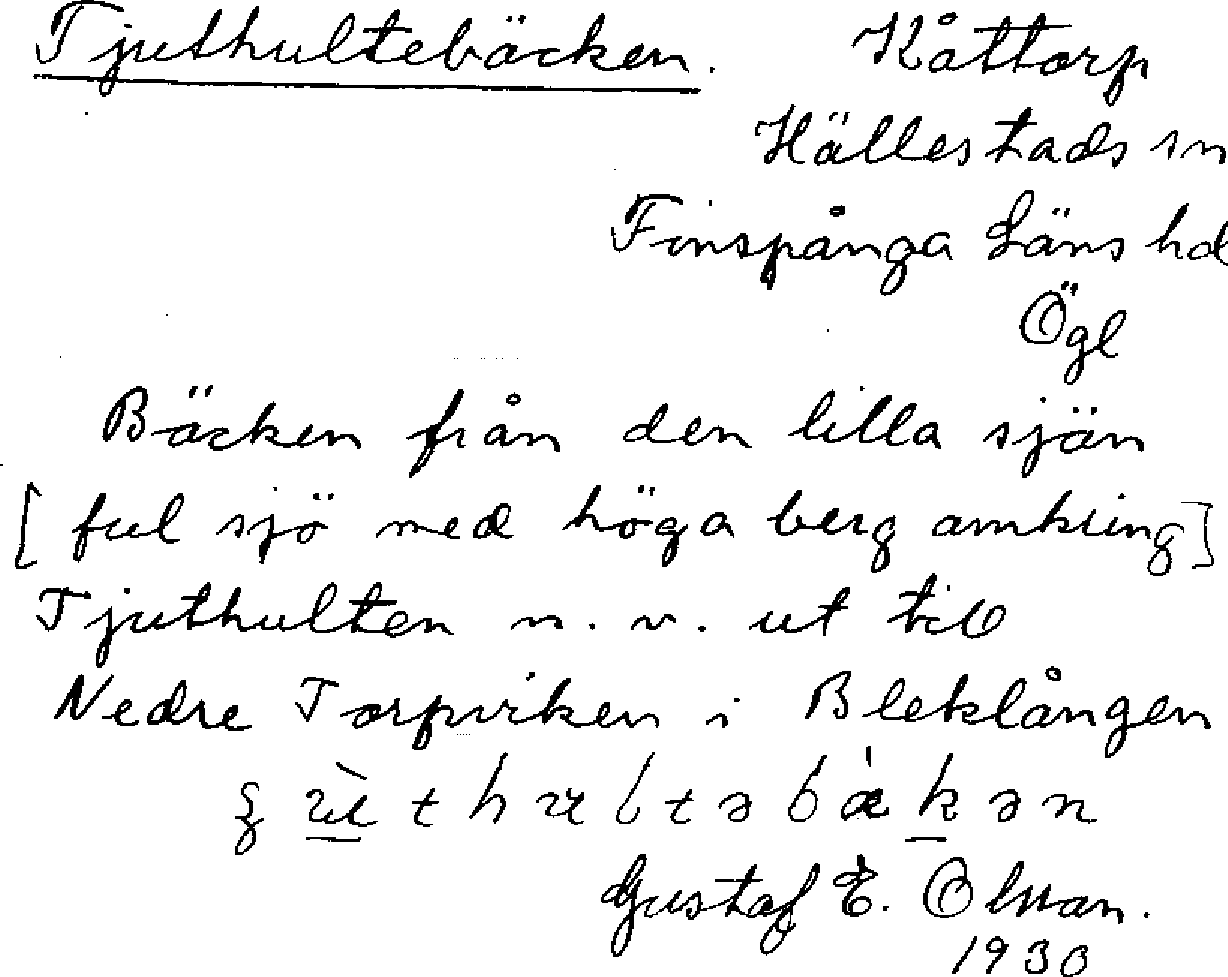 Tjuthultebäcken. Kåttorp
Hällestads sn
Finspånga Läns hd
Ögl
Bäcken från den lilla sjön
[ful sjö med höga berg omkring]
Tjuthulten n. v. ut till
Nedre Torpviken i Bleklången
Gustaf E. Olsson.
1930